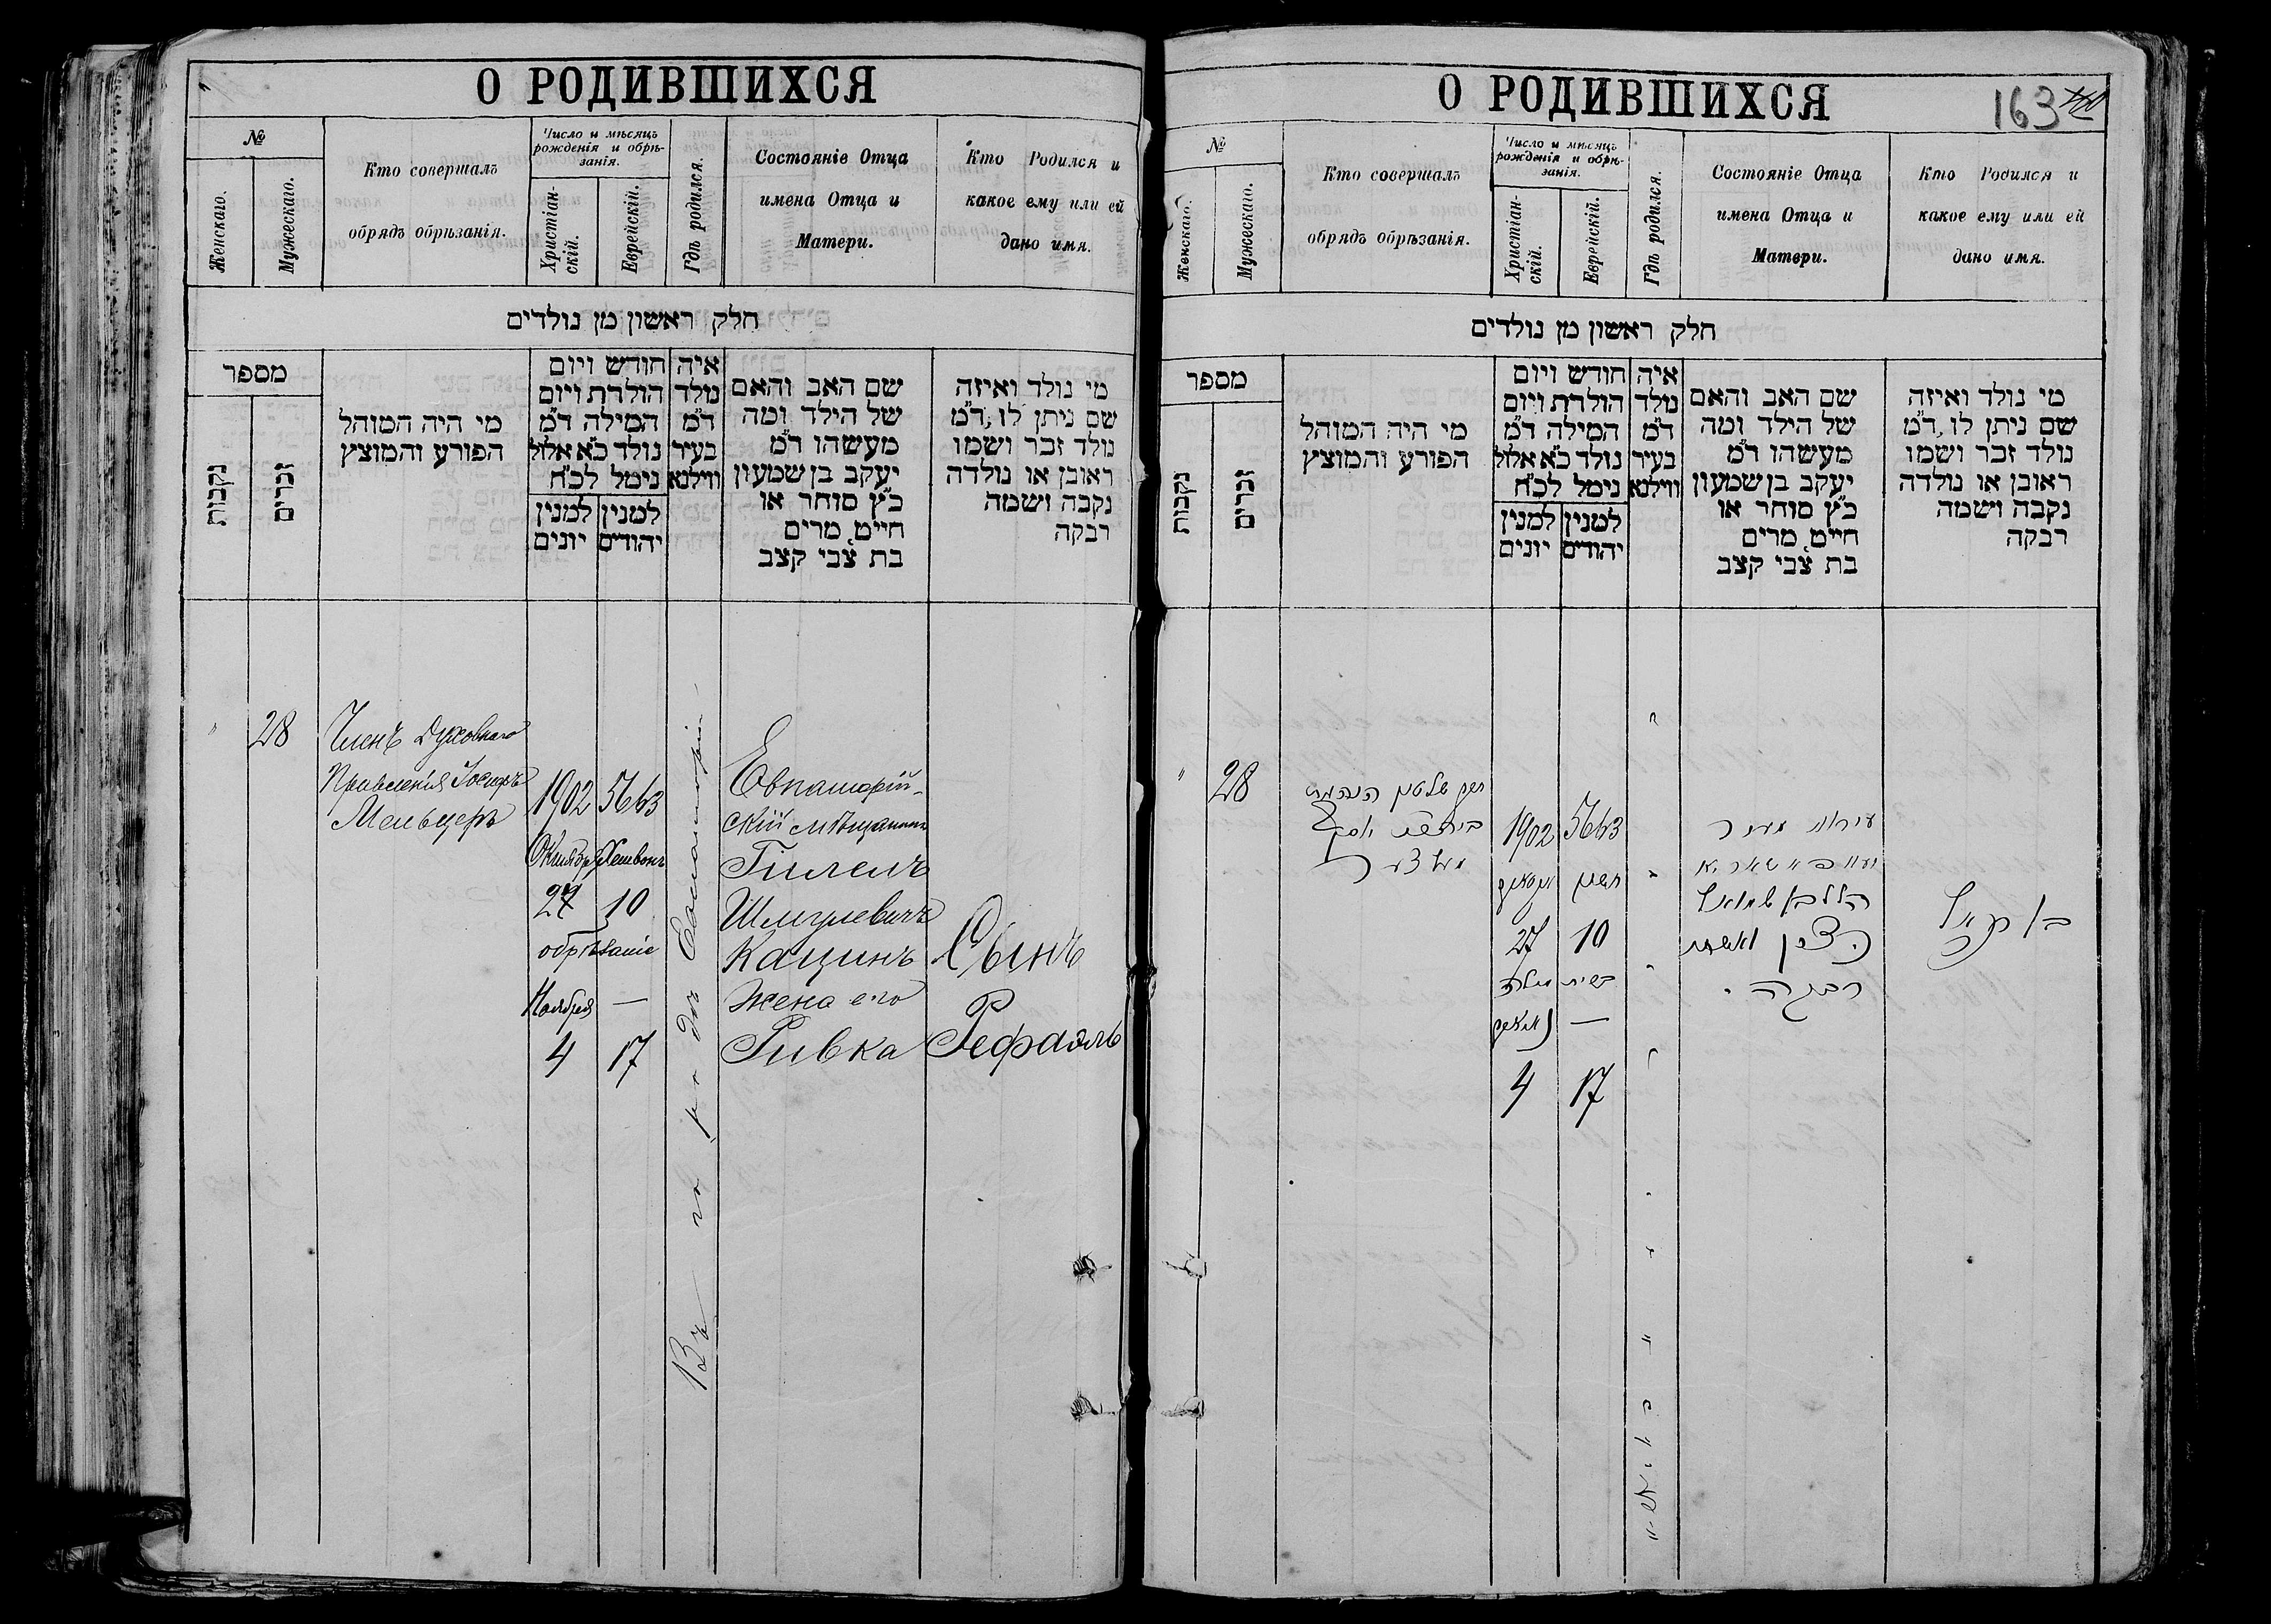 О РОДИВШИХСЯ
№
Женскаго.
Мужескаго.
Кто совершалъ
обрядъ обрѣзанія.
Число и мѣсяцъ
рожденія и обрѣ-
занія.
Христіан-
скій.
Еврейскій.
Гдѣ родился.
Состояніе Отца
имена Отца и
Матери.
Кто Родился и
какое ему или ей
дано имя.
חלק ראשון מן נולדים
מספר
נקבות
זכרים
מי היה המוהל
הפורע והמוצץ
חודש ויום
הולדת ויום
המילה ד״מ
נולד כ״א אלול
נימל לכ״ח
למנין
יונים
למנין
יהודים
איה
נולד
ד״מ
בעיר
ווילנא
שם האב והאם
של הילד ומה
מעשהו ד״מ
יעקב בן שמעון
כ״ץ סוחר או
חייט, מרים
בת צבי קצב
מי נולד ואיזה
שם ניתן לו, ד״מ
נולד זכר ושמו
ראובן או נולדה
נקבה ושמה
רבקה
" 28
Членъ Духовнаго
Правленія Іосифъ
Мельцеръ
1902 5663
Октября Хешвонъ
27 10
обрѣзаніе
Ноября —
4 17
Въ городѣ Евпаторіи
Евпаторій-
скій мѣщанинъ
Гилель
Шмулевичъ
Кацинъ
жена его
Ривка
Сынъ
Рефаэль
О РОДИВШИХСЯ
163
№
Женскаго.
Мужескаго.
Кто совершалъ
обрядъ обрѣзанія.
Число и мѣсяцъ
рожденія и обрѣ-
занія.
Христіан-
скій.
Еврейскій.
Гдѣ родился.
Состояніе Отца
имена Отца и
Матери.
Кто Родился и
какое ему или ей
дано имя.
חלק ראשון מן נולדים
מספר
נקבות
זכרים
מי היה המוהל
הפורע והמוצץ
חודש ויום
הולדת ויום
המילה ד״מ
נולד כ״א אלול
נימל לכ״ח
למנין
יונים
למנין
יהודים
איה
נולד
ד״מ
בעיר
ווילנא
שם האב והאם
של הילד ומה
מעשהו ד״מ
יעקב בן שמעון
כ״ץ סוחר או
חייט, מרים
בת צבי קצב
מי נולד ואיזה
שם ניתן לו, ד״מ
נולד זכר ושמו
ראובן או נולדה
נקבה ושמה
רבקה
" 28
יוסף
מעלצער
1902 5663
אקטאבער חשון
27 10
ברית מילה
נאיאבער —
4 17
הלל בן שמואל
קצין ואשתו
רבקה
בן רפאל